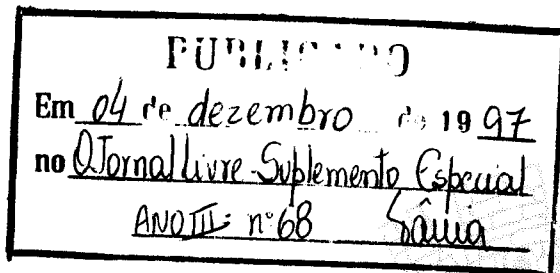 PUBLICADO
Em 04 de dezembro de 19 97
no O Jornal livre - Suplemento Especial
ANO III: nº 68 Sânia